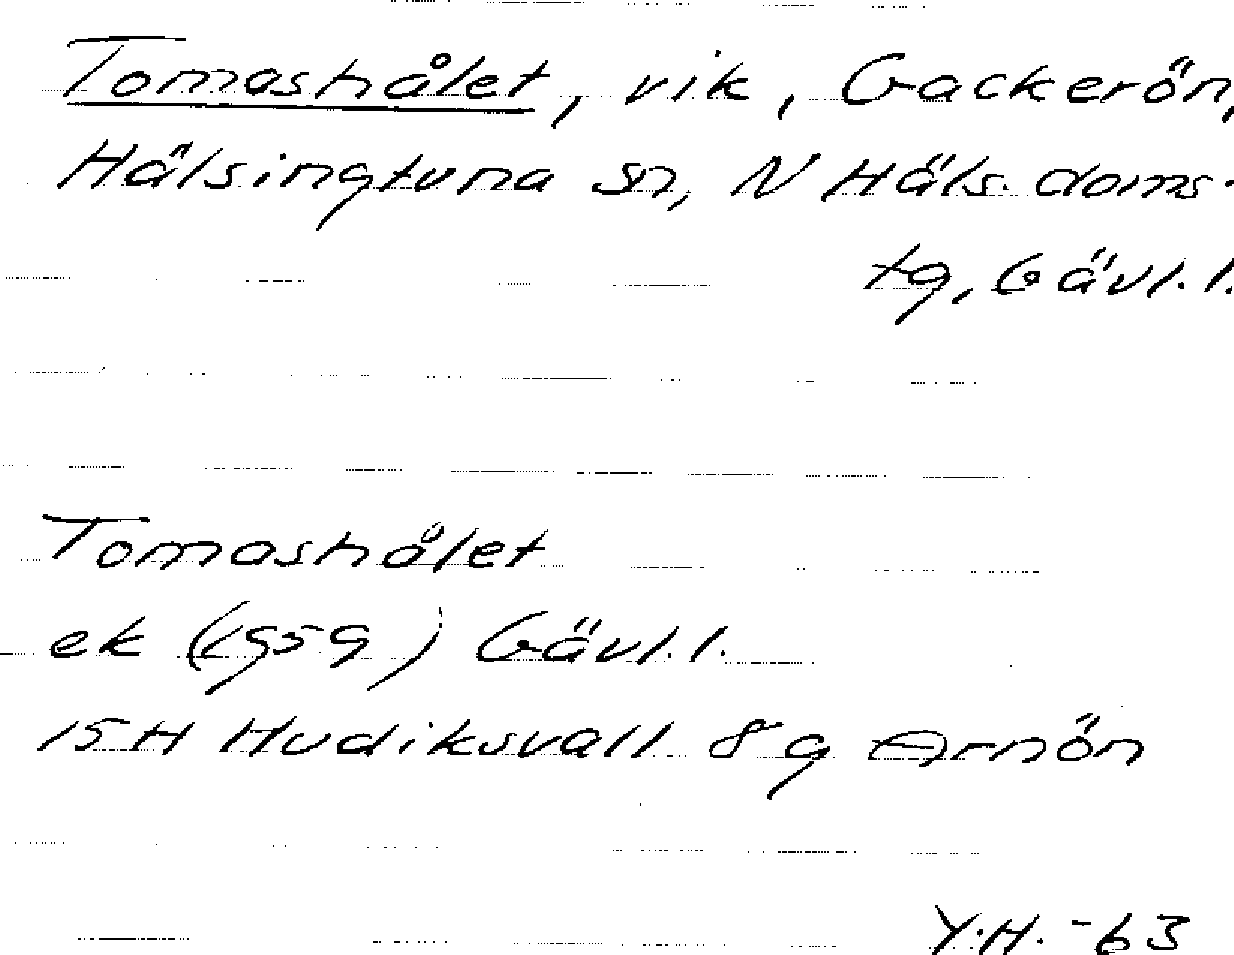 Tomashålet, vik, Gackerön,
Hälsingtuna sn, N Häls. doms.
tg, Gävl. l.
Tomashålet
ek (1959) Gävl. l.
15H Hudiksvall 8g Arnön
Y.H. -63